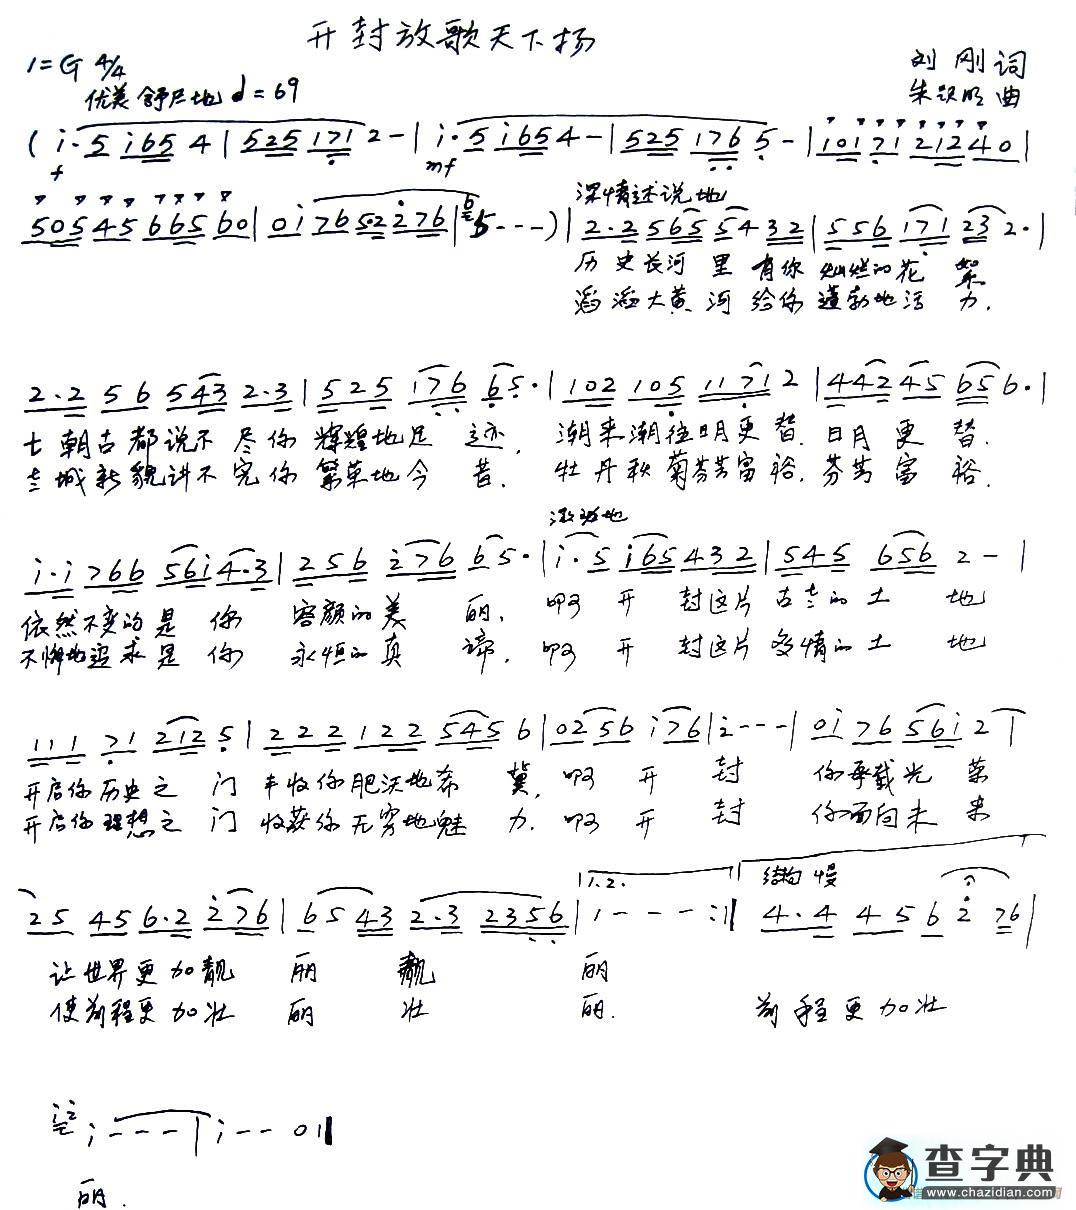 开封放歌天下扬
1=G 4/4
刘刚词
优美 舒展地 ♩=69
朱跃明曲
( i·5 i654 | 525 171 2 - | i·5 i654 - | 525 176 5 - | 101 71 212 40 |
f mf
505 45 665 60 | 0i 76 52 276 | 5 - - - ) | 2·2 565 54 32 | 556 171 23 2· |
深情述说地
历史长河里有你灿烂的花絮
滔滔大黄河给你蓬勃地活力.
2·2 56 543 2·3 | 525 176 65· | 102 105 1171 2 | 442 45 65 6· |
七朝古都说不尽你辉煌地足迹, 潮来潮往日月更替.日月更替.
古城新貌讲不完你繁华地今昔, 牡丹秋菊芬芳富裕.芬芳富裕.
激动地
i·i 766 56i 4·3 | 256 276 65· | i·5 i65 432 | 545 656 2 - |
依然不变的是你容颜的美丽, 啊开封这片古老的土地
不懈地追求是你永恒的真谛, 啊开封这片多情的土地
111 71 212 5 | 222 122 545 6 | 02 56 i76 | 2 - - - | 0i 76 56i 2
开启你历史之门丰收你肥沃地希冀, 啊开封你承载光荣
开启你理想之门收获你无穷地魅力.啊开封你面向未来
1.2. 结构 慢
25 45 6·2 276 | 65 43 2·3 2356 | i - - - :| 4·4 45 6 2 76 |
让世界更加靓丽靓丽
使前程更加壮丽壮丽. 前程更加壮
i - - - | i - - 0 ‖
丽.
查字典
www.chazidian.com